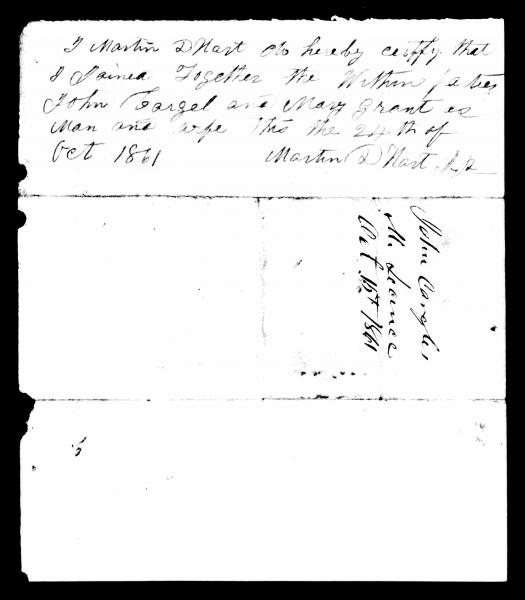 I Martin D Hart do hereby certfy that
I Joined Together the Within parties
John Cargel and Mary Grant as
Man and wife this the 24th of
Oct 1861 Martin D Hart
John Cargle,
M. Licence
Oct 1861